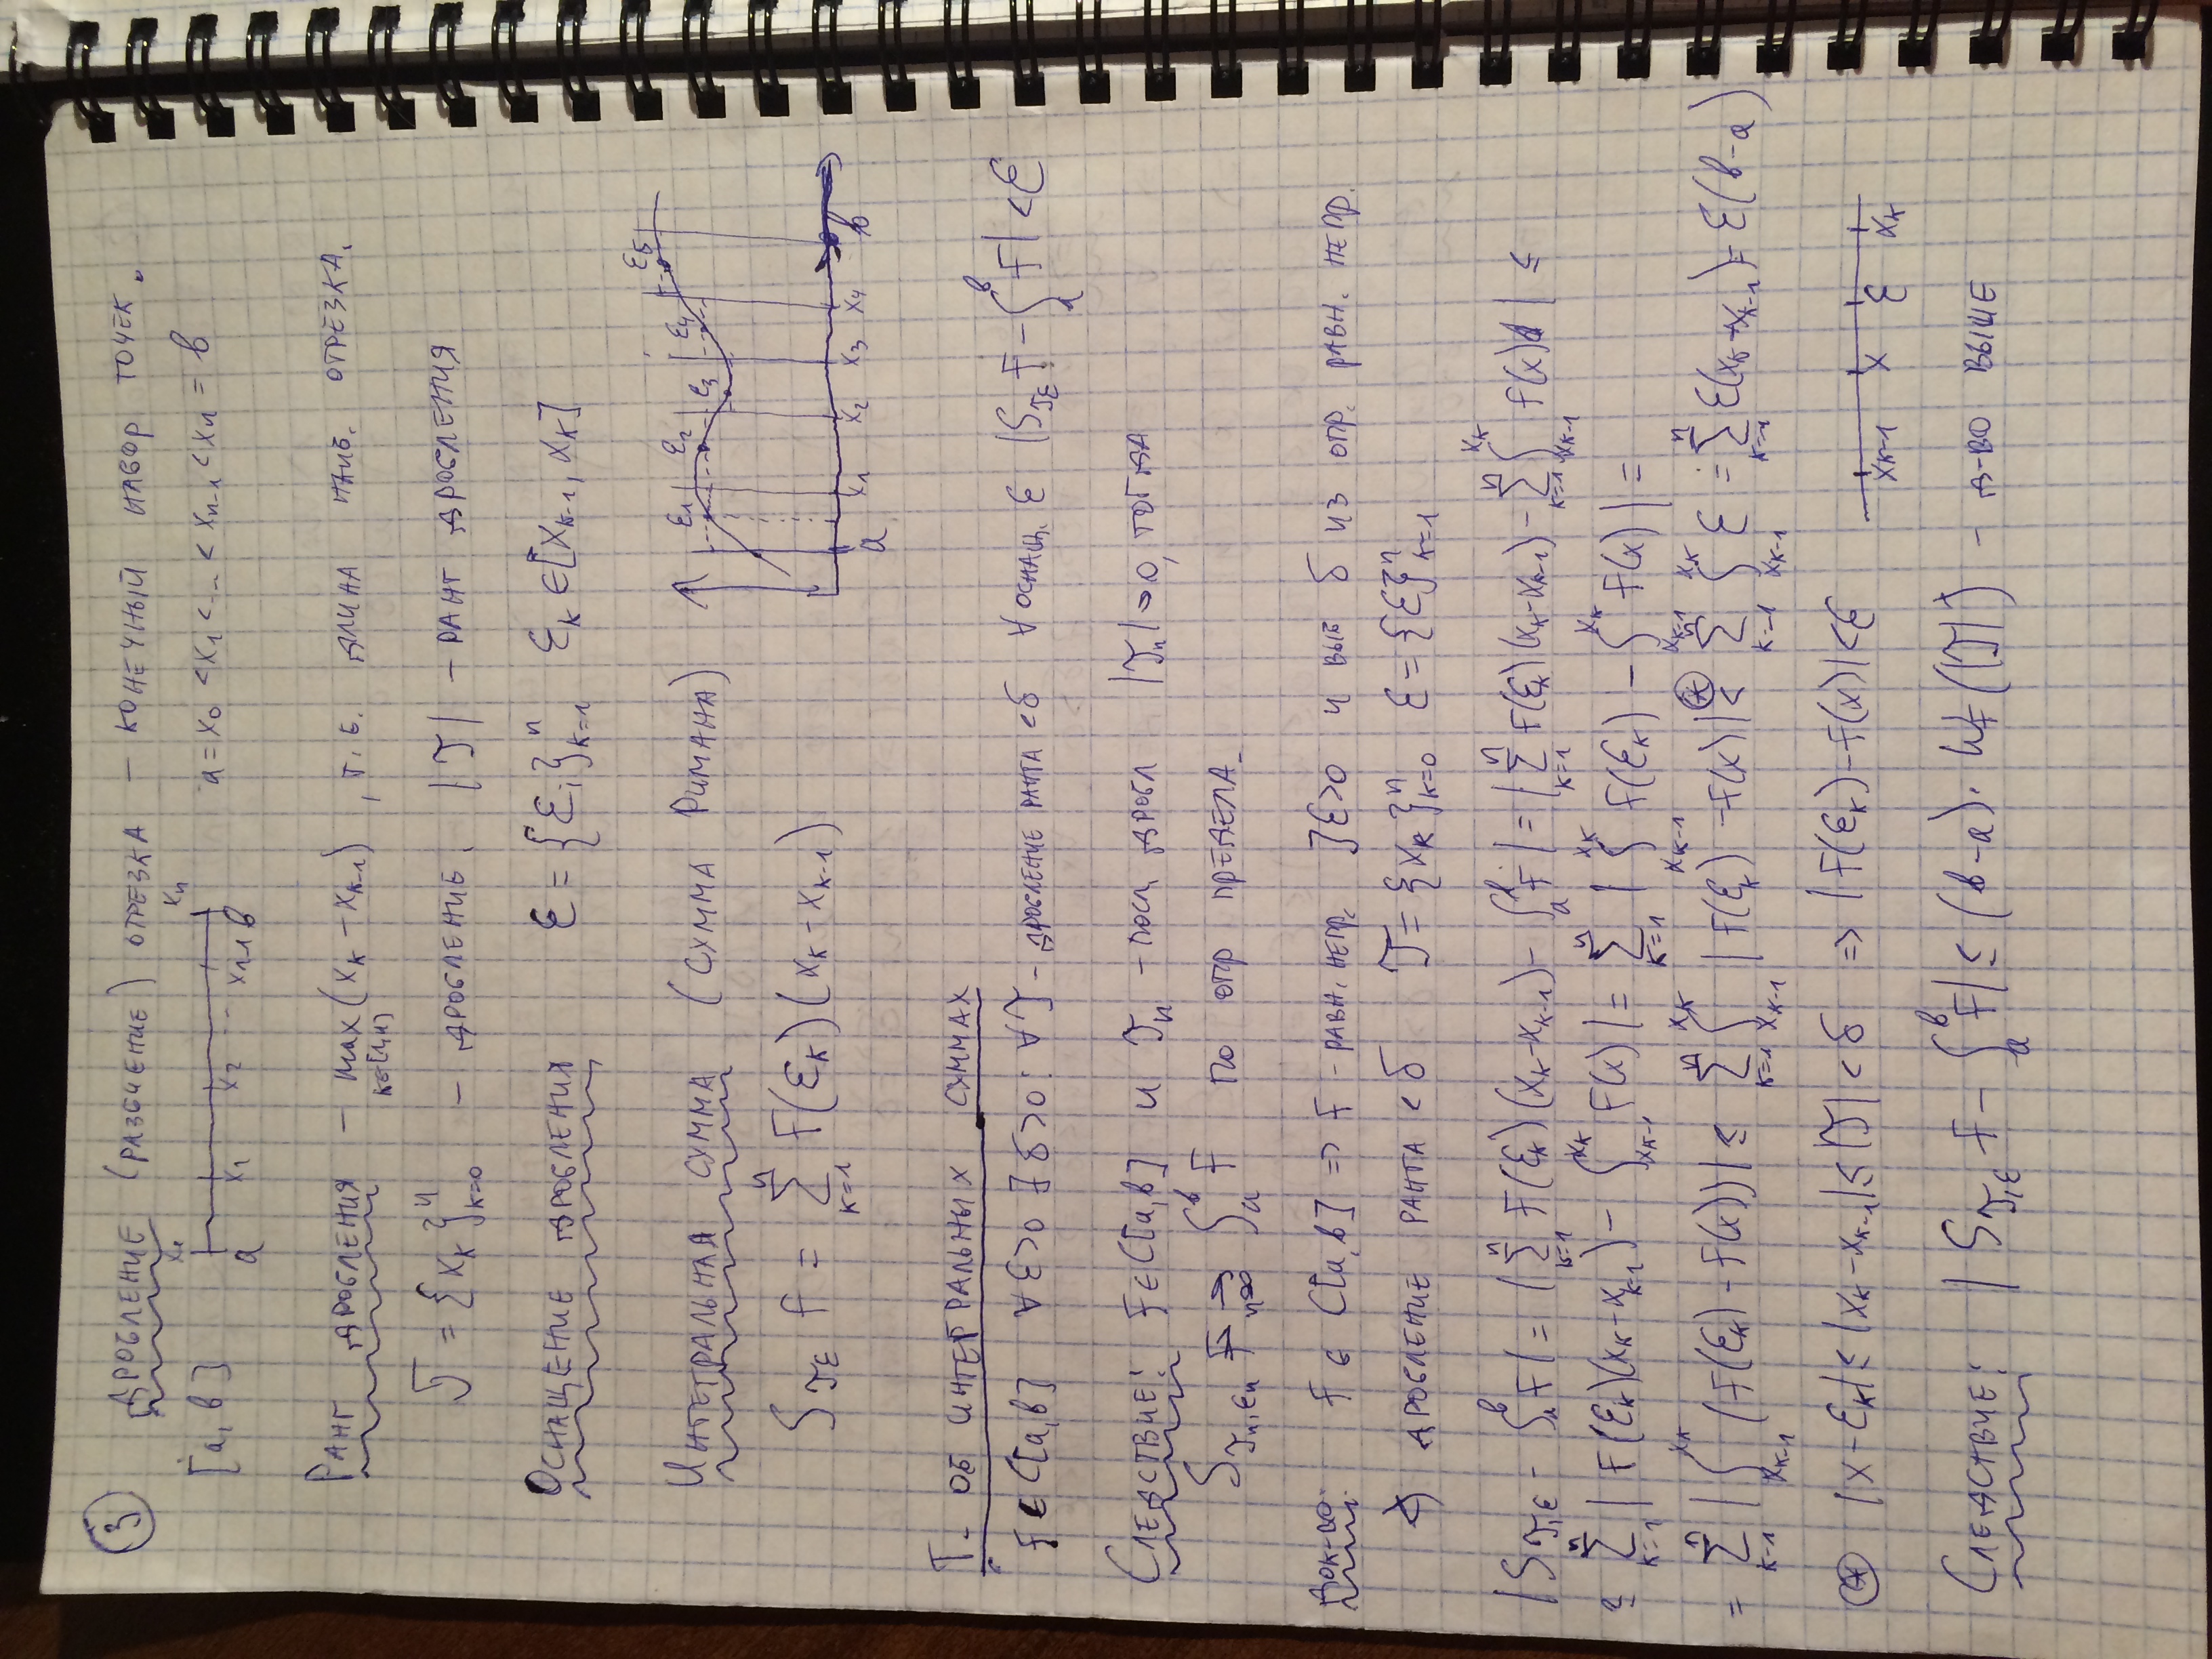 3 ДРОБЛЕНИЕ (РАЗБИЕНИЕ) ОТРЕЗКА – КОНЕЧНЫЙ НАБОР ТОЧЕК.
[a, b] x₀ xₙ a x₁ x₂ ... xₙ₋₁ b a = x₀ < x₁ < ... < xₙ₋₁ < xₙ = b
РАНГ ДРОБЛЕНИЯ – max (x_k – x_{k-1}), Т.Е. ДЛИНА НАИБ. ОТРЕЗКА.
k∈[1,n]
τ = {x_k}ⁿ_{k=0} – ДРОБЛЕНИЕ. |τ| – РАНГ ДРОБЛЕНИЯ
ОСНАЩЕНИЕ ДРОБЛЕНИЯ ε = {ε_i}ⁿ_{k=1} ε_k ∈ [x_{k-1}, x_k]
ИНТЕГРАЛЬНАЯ СУММА (СУММА РИМАНА)
ε₁ ε₂ ε₃ ε₄ ε₅
S_{τε} f = ∑ⁿ_{k=1} f(ε_k)(x_k – x_{k-1})
a x₁ x₂ x₃ x₄ b
Т. ОБ ИНТЕГРАЛЬНЫХ СУММАХ
f ∈ C[a,b] ∀ε>0 ∃δ>0: ∀τ – ДРОБЛЕНИЕ РАНГА < δ ∀ ОСНАЩ. ε |S_{τε} f – ∫_a^b f| < ε
СЛЕДСТВИЕ: f ∈ C[a,b] И τₙ – ПОСЛ ДРОБЛ |τₙ| → 0, ТОГДА
S_{τₙ,εₙ} f →_{n→∞} ∫_a^b f ПО ОПР ПРЕДЕЛА.
ДОК-ВО. f ∈ C[a,b] => f – РАВН. НЕПР. ] ε>0 И ВЫБ δ ИЗ ОПР. РАВН. НЕПР.
ДРОБЛЕНИЕ РАНГА < δ τ = {x_k}ⁿ_{k=0} ε = {ε}ⁿ_{k=1}
|S_{τ,ε} – ∫_a^b f| = |∑ⁿ_{k=1} f(ε_k)(x_k – x_{k-1}) – ∫_a^b f| = |∑ⁿ_{k=1} f(ε_k)(x_k – x_{k-1}) – ∑ⁿ_{k=1} ∫_{x_{k-1}}^{x_k} f(x)| ≤
≤ ∑ⁿ_{k=1} |f(ε_k)(x_k – x_{k-1}) – ∫_{x_{k-1}}^{x_k} f(x)| = ∑ⁿ_{k=1} |∫_{x_{k-1}}^{x_k} f(ε_k) – ∫_{x_{k-1}}^{x_k} f(x)| =
= ∑ⁿ_{k=1} |∫_{x_{k-1}}^{x_k} (f(ε_k) – f(x))| ≤ ∑ⁿ_{k=1} ∫_{x_{k-1}}^{x_k} |f(ε_k) – f(x)| ≤ⓧ ∑ⁿ_{k=1} ∫_{x_{k-1}}^{x_k} ε = ∑ⁿ_{k=1} ε(x_k – x_{k-1}) = ε(b–a)
⊛ |x – ε_k| ≤ |x_k – x_{k-1}| ≤ |τ| < δ => |f(ε_k) – f(x)| < ε x_{k-1} x ε x_k
СЛЕДСТВИЕ: |S_{τ,ε} f – ∫_a^b f| ≤ (b–a)·ω_f(|τ|) – Д-ВО ВЫШЕ